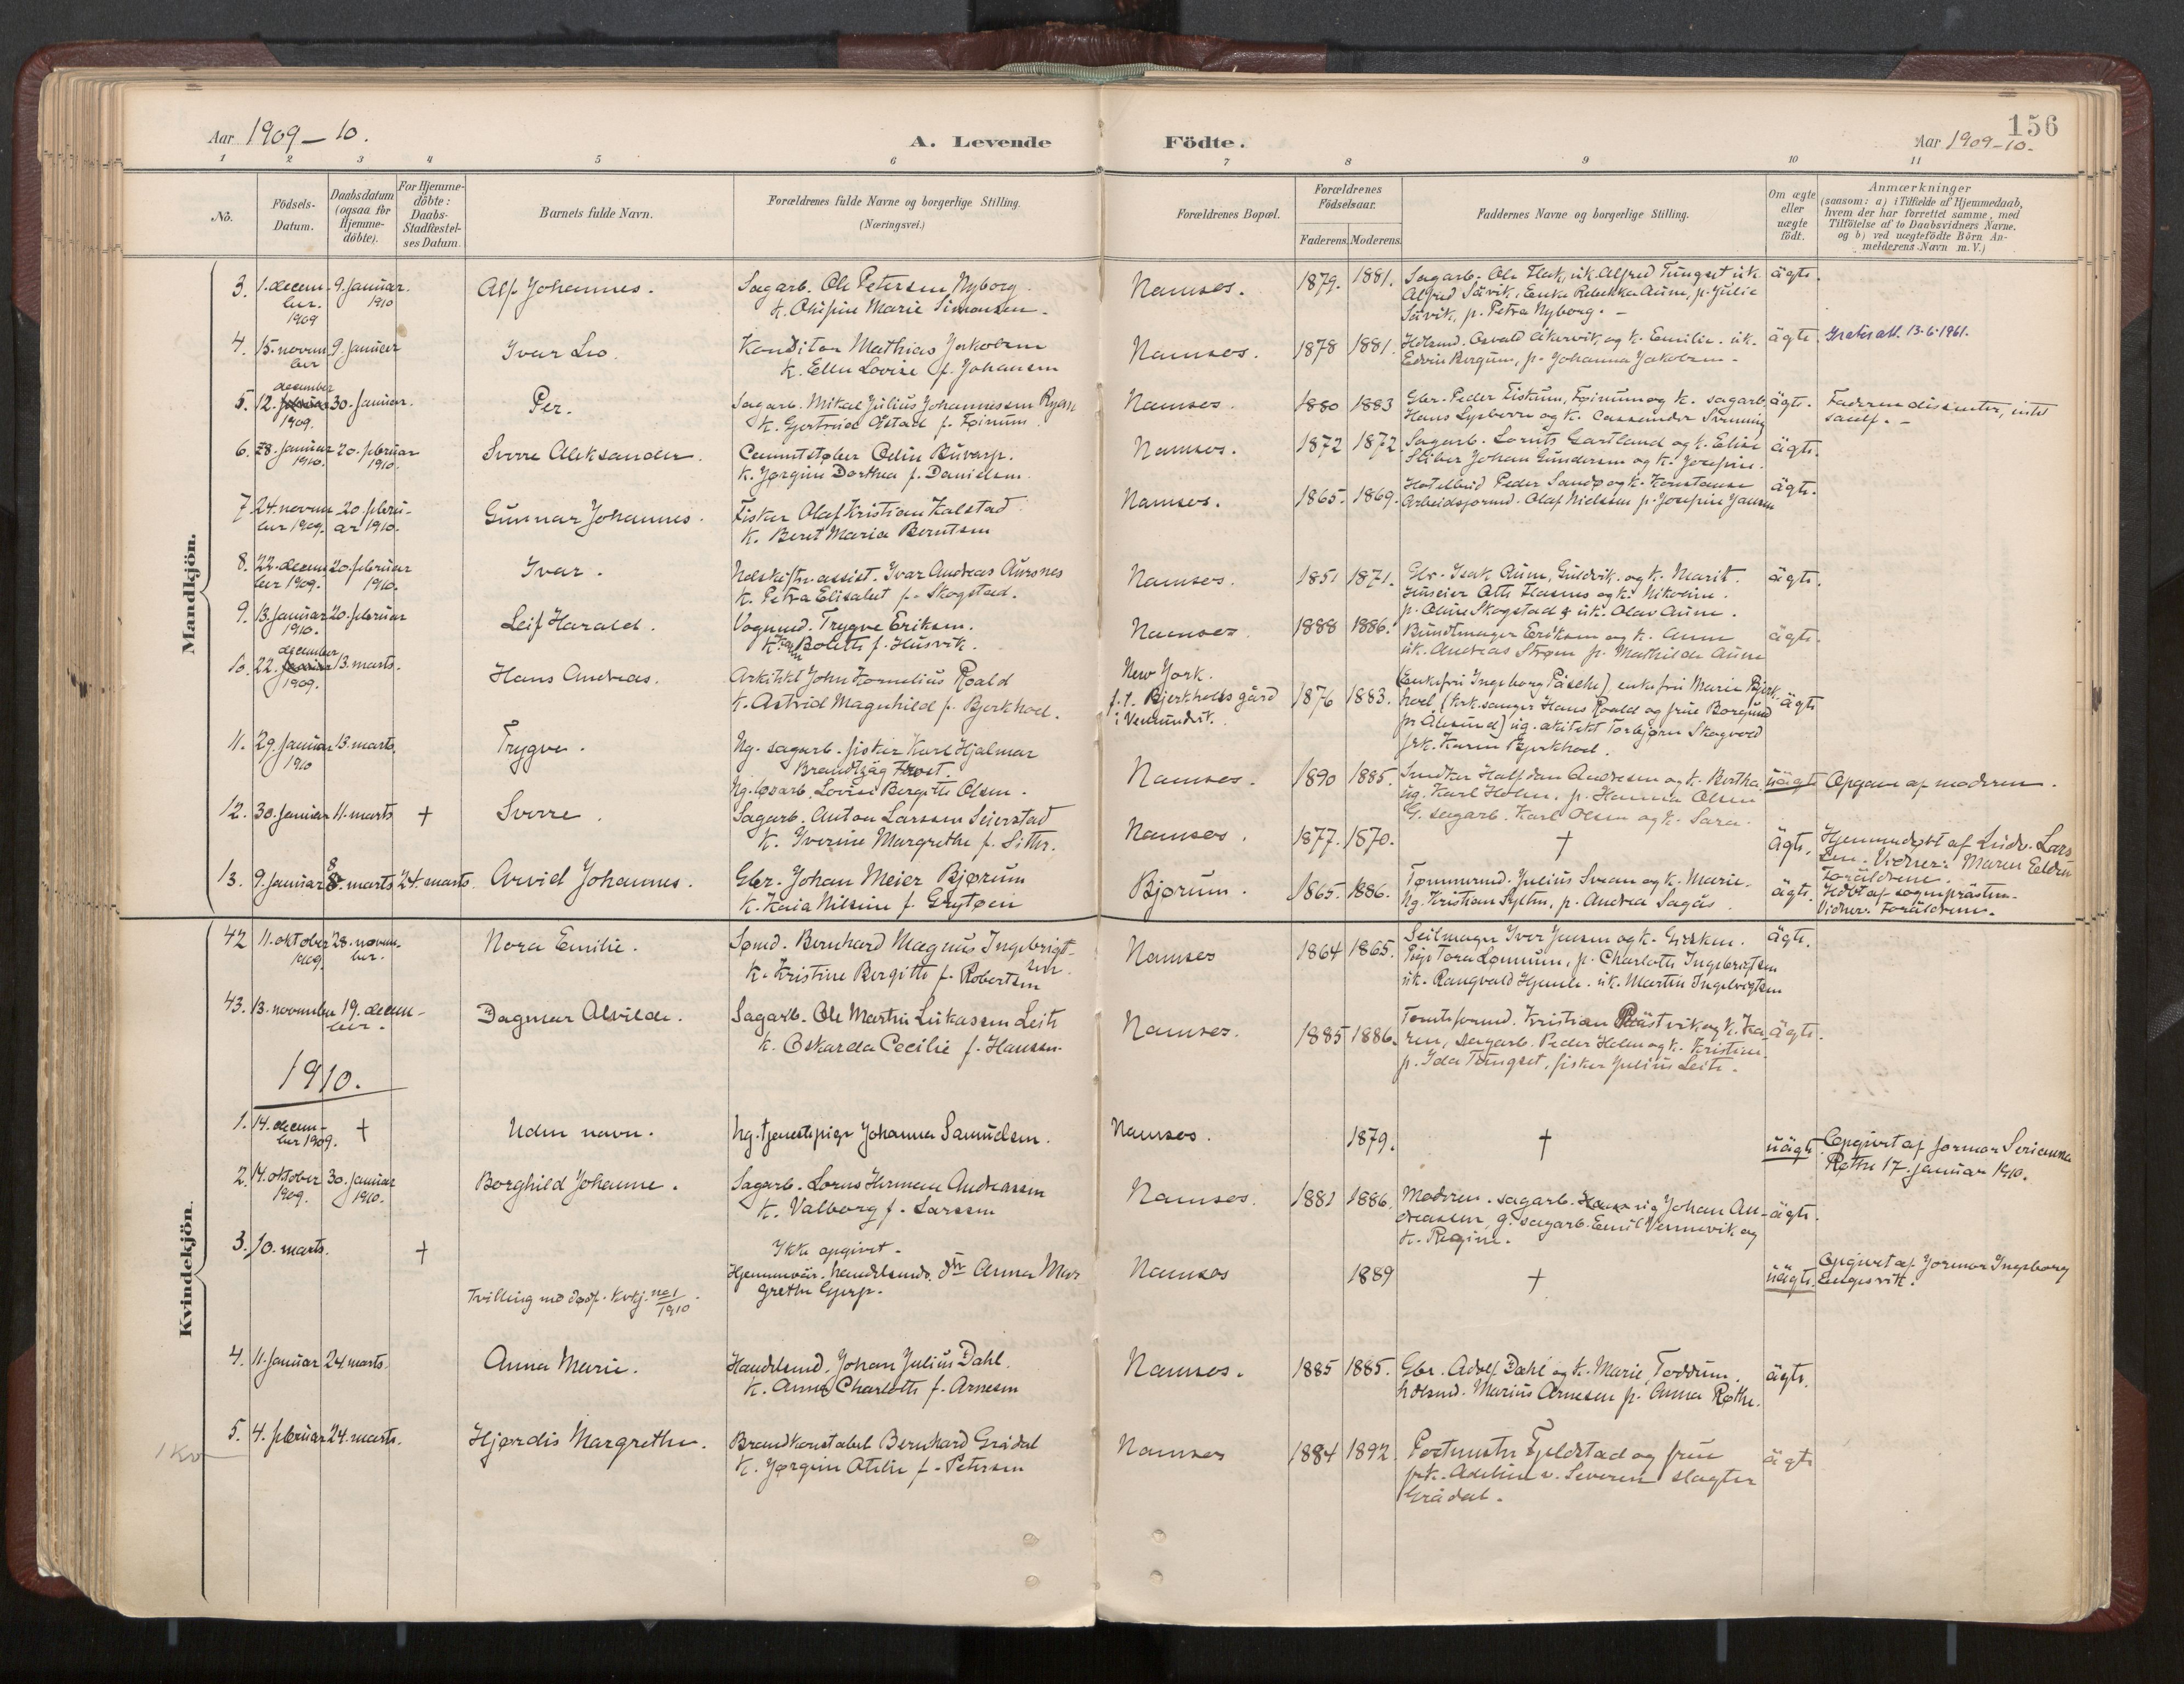 156
Aar 1909-10.
A. Levende Födte.
Aar 1909-10.
1 2 3 4 5 6 7 8 9 10 11
No.
Födsels-Datum.
Daabsdatum (ogsaa for Hjemme-döbte).
For Hjemme-döbte: Daabs-Stadfæstel-ses Datum.
Barnets fulde Navn.
Forældrenes fulde Navne og borgerlige Stilling.
(Næringsvei.)
Forældrenes Bopæl.
Forældrenes Födselsaar.
Faderens. Moderens.
Faddernes Navne og borgerlige Stilling.
Om ægte eller uægte födt.
Anmærkninger
(saasom: a) i Tilfælde af Hjemmedaab,
hvem der har forrettet samme, med
Tilföielse af to Daabsvidners Navne.
og b) ved uægtefödte Börn An-
melderens Navn m.V.)
Mandkjön.
3. 1. decem-ber. 1909 9. januar. 1910 Alf Johannes. Sagarb. Ole Petersen Nyborg.
K. Marie Simonsen. Namsos. 1879. 1881. Sagarb. Ole Flak, uk. Alfred Tungset uk.
Alfred Sævik, Enke Rebekka Aune, p. Julie
Sævik, p. Petra Nyborg. ägte.
4. 15. novem ber 9. januar Ivar Leo. Konditor Mathias Jakobsen
K. Ellen Lovise f. Johansen Namsos. 1878 1881. Osvald Akervik, og k. Emilie. uk.
Edvin Bergum, p. Johanna Jakobsen. ägte. 13.6.1961.
5. 12. december 1909. 30. januar. Per. Sagarb. Mikal Julius Johannessen
K. Gertrud Åstad f. Føinum. Namsos. 1880 1883 Gbr. Peder Fiskum, Føinum og K. sagarb.
Hans og K. ägte. Faderen dissenter, intet
samf.
6. 28. januar 1910. 20. februar 1910. Sverre Aleksander. Odin Buvarp.
K. Jørgine Dorthea f. Danielsen. Namsos. 1872 1872. Sagarb. Lorents Gartland og k. Eline
Sliber Johan Gundersen og k. Josefine. ägte.
7. 24. novem ber 1909. 20. febru-ar 1910. Gunnar Johannes. Fisker Olaf Kristian Kalstad
K. Beret Maria Berntsen Namsos. 1865. 1869. Peder Sandø og k. Konstanse
Arbeidsformd. Olaf Nielsen p. Josefine Jansen ägte.
8. 22. decem ber 1909. 20. februar 1910. Ivar. assist. Ivar Andreas Aursnes
K. Petra Elisabet f. Skogstad. Namsos. 1851 1871. Gbr. Isak Aune, Guldvik. og k. Marit.
Huseier Otto og k. Nikoline.
p. Oline Skogstad & uk. Olav Aune. ägte.
9. 13. januar 1910. 20. februar Leif Harald. Vognmd. Trygve Eriksen.
K. Bolette f. Husvik. Namsos. 1888 1886. Buntmager Eriksen og k. Anne
uk. Andreas Strøm p. Mathilde Aune ägte.
10. 22. december 1909. 13. marts. Hans Andreas. Arkitekt John Kornelius Roald
K. Astrid Magnhild f. Bjerkhoel. New York.
f.t. Bjerkhoels gård
i Vemundvik. 1876 1883. (Enkefru Ingeborg Påsche) enkefru Marie Bjerk-
hoel (kirkesanger Hans Roald og frue Borgund
pr Ålesund) ug. arkitekt Torbjørn Skogvold
frk. Karen Bjerkhoel. ägte
11. 29. januar 1910 13. marts. Trygve. Ug. sagarb. fisker Karl Hjalmar
Brandtzæg Frost.
Ug. løsarb. Lovise Bergitte Olsen. Namsos. 1890 1885. Snedker Halfdan Andresen og k. Bertha
ug. Karl Holm. p. Hanna Olsen
G. sagarb. Karl Olsen og k. Sara. uägte Opgave af moderen.
12. 30. januar 11. marts + Sverre. Sagarb. Anton Larssen Seierstad
K. Iverine Margrethe f. Sitter. Namsos. 1877. 1870. + ägte. Hjemmedøbt af Ludv. Lars
sen. Vidner: Maren
Forældrene.
13. 9. januar 8. marts 24. marts. Arvid Johannes. Gbr. Johan Meier Bjørum
K. Kaia Nilsine f. Grytøen Bjørum. 1865. 1886. Tømmermd. Julius Svean og k. Marie.
Ug. Kristian p. Andrea Sagås ägte. Hdbt af sogneprästen.
Vidner: Forældrene.
Kvindekjön.
42 11. oktober 1909. 28. novem-ber. Nora Emilie. Sømd. Bernhard Magnus Ingebrigt-
sen.
K. Kristine Bergitte f. Robertsen Namsos 1864 1865. Seilmager Iver Jensen og k.
Pige Tora Lønnum, p. Charlotte Ingebrigtsen
uk. Rangvald uk. Martin Ingebrigtsen ägte.
43. 13. november 19. decem-ber. Dagmar Alvilde. Sagarb. Ole Martin Lukassen Leite
K. Oskarda Cecilie f. Hansen. Namsos. 1885 1886. Kristian og k. Ka-
ren, sagarb. Peder Holm og k. Kristine.
p. Ida Tungset, fisker Julius Leite. ägte.
1910.
1. 14. decem-ber 1909. + Uden navn. Ug. tjenestepige Johanna Samuelsen. Namsos. 1879. + uägte Opgivet af jormor Serianna
Røthe 17. januar 1910.
2. 14. oktober 1909. 30. januar 1910. Borghild Johanne. Sagarb. Lorns Herman Andreassen
K. Valborg f. Larssen Namsos. 1881 1886. Moderen. sagarb. ug Johan An-
dreassen, g. sagarb. Emil Vennevik og
k. Regine. ägte.
3. 10. marts. + Ikke opgivet.
Tvilling med dødf. kvkj. no 1/1910. Hjemmevär. handelsmds. dtr Anna Mar
grethe Gjerp. Namsos 1889 + uägte. Opgivet af jormor Ingeborg
4. 11. januar 24. marts. Anna Marie. Handelsmd. Johan Julius Dahl.
K. Anna Charlotte f. Arnesen Namsos. 1885 1885. Gbr. Adolf Dahl og k. Marie, Foddum.
hdlsmd. Marius Arnesen p. Anna Røthe. ägte.
5. 4. februar 24. marts. Hjørdis Margrethe. Brandkonstabel Bernhard Grådal
K. Jørgine Otelie f. Petersen Namsos 1884 1892. Postmester Fjeldstad og frue
frk. Adeline v. Severen slagter
Grådal. ägte
1 Kv